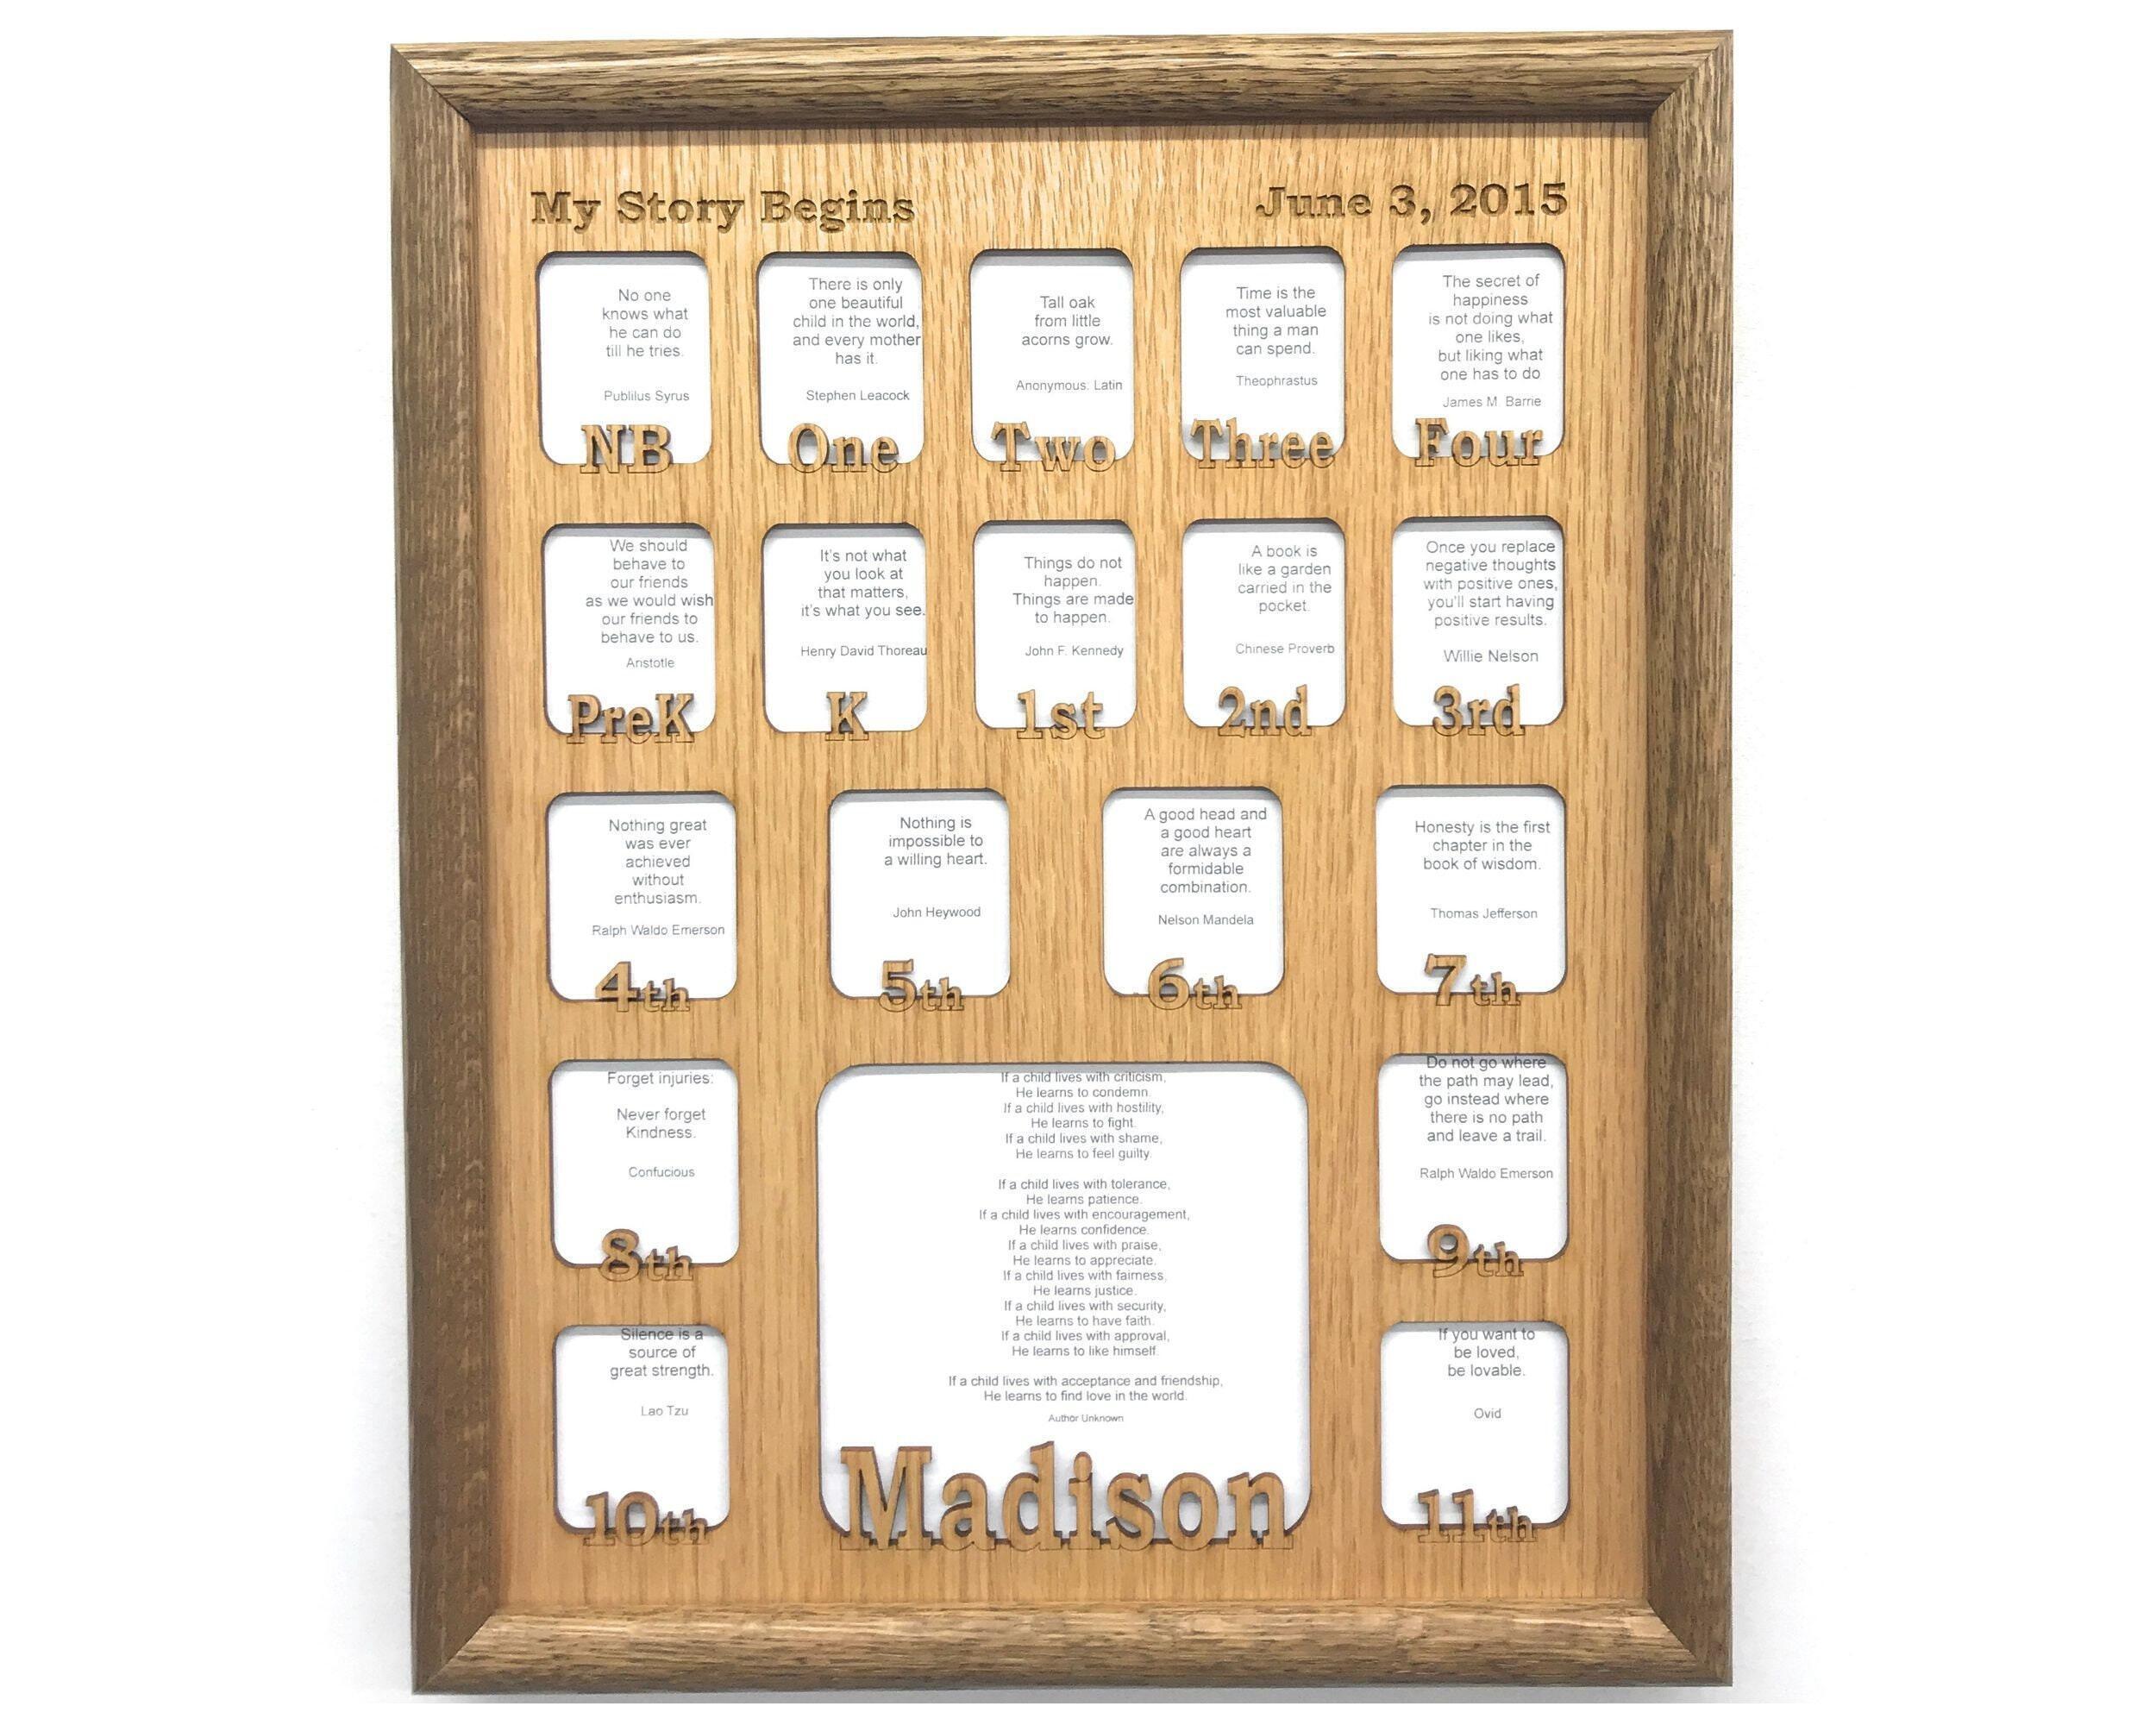 My Story Begins
June 3, 2015
No one
knows what
he can do
till he tries.
Publilus Syrus
NB
There is only
one beautiful
child in the world,
and every mother
has it.
Stephen Leacock
One
Tall oak
from little
acorns grow.
Anonymous: Latin
Two
Time is the
most valuable
thing a man
can spend.
Theophrastus
Three
The secret of
happiness
is not doing what
one likes,
but liking what
one has to do
James M. Barrie
Four
We should
behave to
our friends
as we would wish
our friends to
behave to us.
Aristotle
PreK
It's not what
you look at
that matters,
it's what you see.
Henry David Thoreau
K
Things do not
happen.
Things are made
to happen.
John F. Kennedy
1st
A book is
like a garden
carried in the
pocket.
Chinese Proverb
2nd
Once you replace
negative thoughts
with positive ones,
you'll start having
positive results.
Willie Nelson
3rd
Nothing great
was ever
achieved
without
enthusiasm.
Ralph Waldo Emerson
4th
Nothing is
impossible to
a willing heart.
John Heywood
5th
A good head and
a good heart
are always a
formidable
combination.
Nelson Mandela
6th
Honesty is the first
chapter in the
book of wisdom.
Thomas Jefferson
7th
Forget injuries:
Never forget
Kindness.
Confucious
8th
If a child lives with criticism,
He learns to condemn.
If a child lives with hostility,
He learns to fight.
If a child lives with shame,
He learns to feel guilty.
If a child lives with tolerance,
He learns patience.
If a child lives with encouragement,
He learns confidence.
If a child lives with praise,
He learns to appreciate.
If a child lives with fairness,
He learns justice.
If a child lives with security,
He learns to have faith.
If a child lives with approval,
He learns to like himself.
If a child lives with acceptance and friendship,
He learns to find love in the world.
Author Unknown
Madison
Do not go where
the path may lead,
go instead where
there is no path
and leave a trail.
Ralph Waldo Emerson
9th
Silence is a
source of
great strength.
Lao Tzu
10th
If you want to
be loved,
be lovable.
Ovid
11th